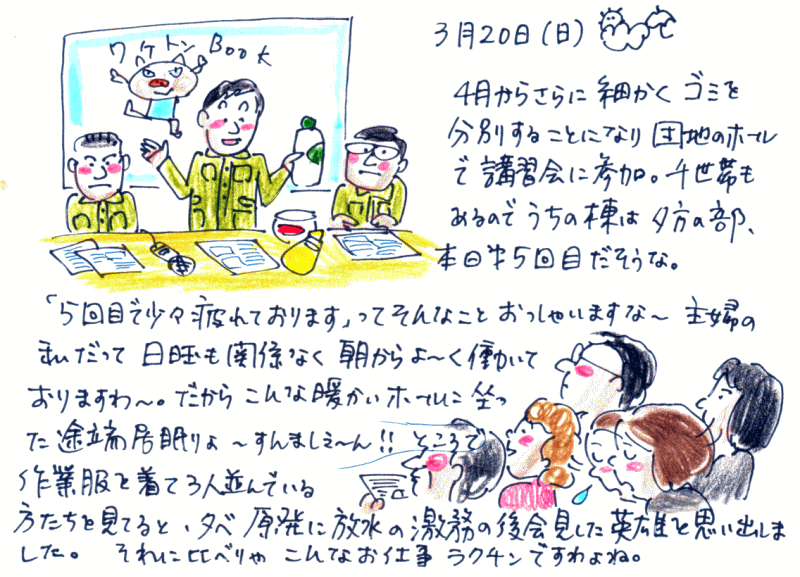 ワケトン BOOK
3月20日(日)
4月からさらに細かくゴミを
分別することになり団地のホール
で講習会に参加。千世帯も
あるのでうちの棟は夕方の部、
本日第5回目だそうな。
「5回目で少々疲れております」ってそんなことおっしゃいますな〜 主婦の
私だって日曜も関係なく朝からよ〜く働いて
おりますわ〜。だからこんな暖かいホールに坐っ
た途端居眠りよ〜すんましぇ〜ん!! ところで
作業服を着て3人並んでいる
方たちを見てると、夕べ原発に放水の激務の後会見した英雄を思い出しま
した。 それに比べりゃこんなお仕事ラクチンですわよね。